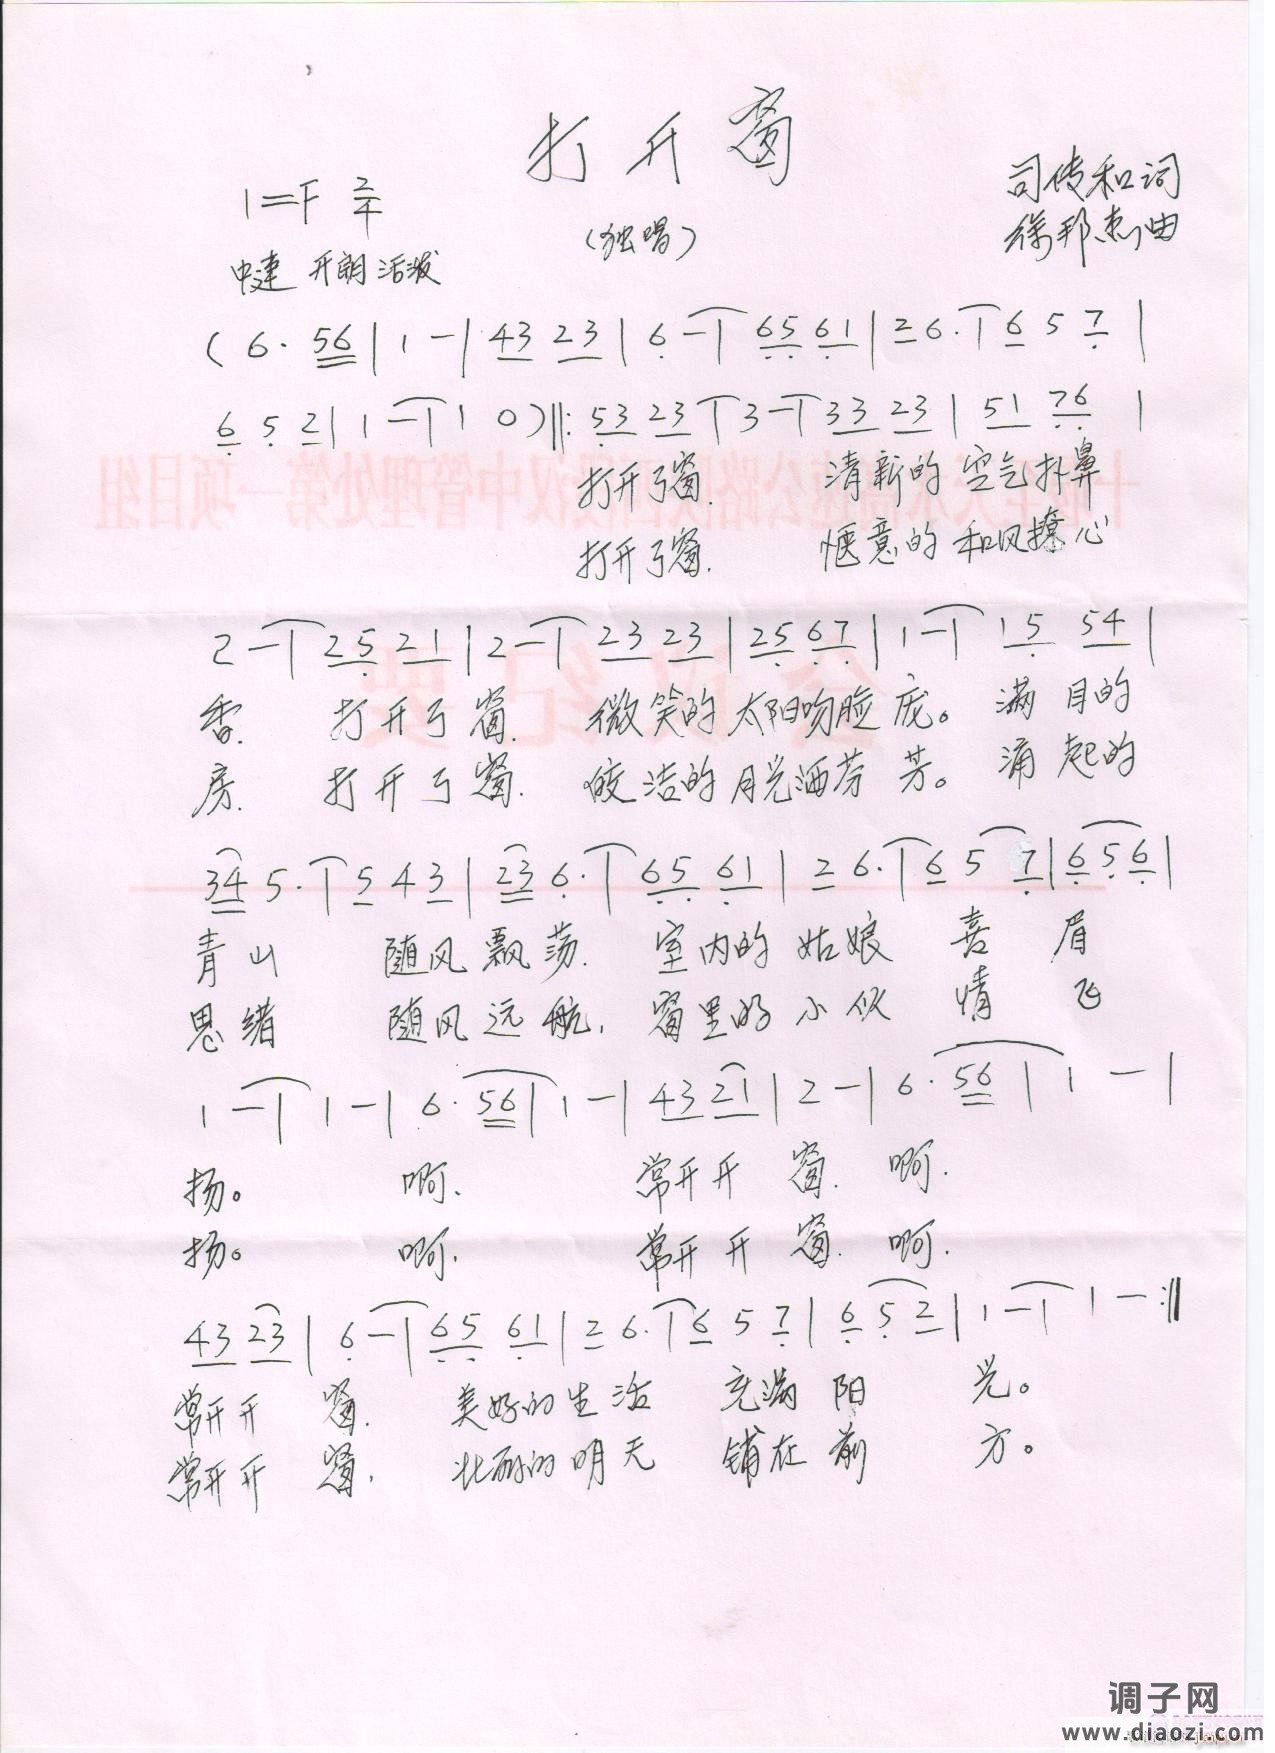 打开窗
1=F 2/4
(独唱)
司传和词
徐邦杰曲
中速 开朗活泼
(6· 56|1 -|43 23|6 -|65 61|26·|6 5 7|
6 5 2|1 -|1 0)‖:53 23|3 -|33 23|51 76|
打开了窗. 清新的空气扑鼻
打开了窗. 惬意的和风撩心
2 -|25 21|2 -|23 23|25 67|1 -|15 54|
香. 打开了窗. 微笑的太阳吻脸庞。满目的
房. 打开了窗. 皎洁的月光洒芬芳。涌起的
34 5·|5 4 3|23 6·|65 61|2 6·|6 5 7|6 5 6|
青山 随风飘荡. 室内的姑娘 喜 眉
思绪 随风远航, 窗里的小伙 情 飞
1 -|1 -|6· 56|1 -|43 21|2 -|6· 56|1 -|
扬。 啊. 常开开窗. 啊.
扬。 啊. 常开开窗. 啊.
43 23|6 -|65 61|2 6·|6 5 7|6 5 2|1 -|1 -:‖
常开开窗. 美好的生活 充满阳 光。
常开开窗, 壮丽的明天 铺在前 方。
会议纪要
调子网
www.diaozi.com